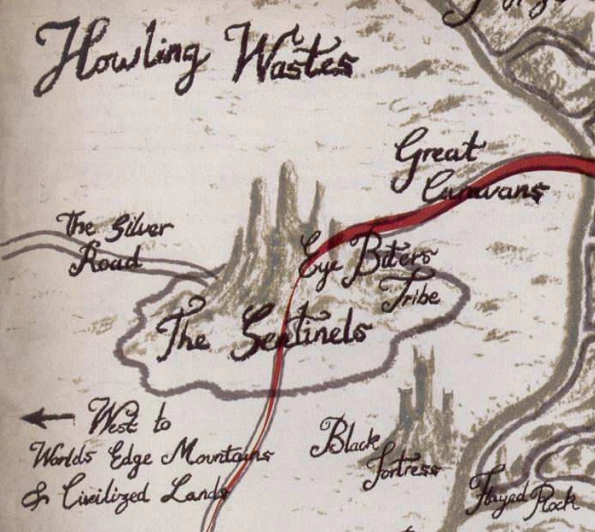 Howling Wastes
Great
Caravans
The Silver
Road
Eye Biters
Tribe
The Sentinels
West to
Worlds Edge Mountains
& Civilized Lands
Black
Fortress
Flayed Rock